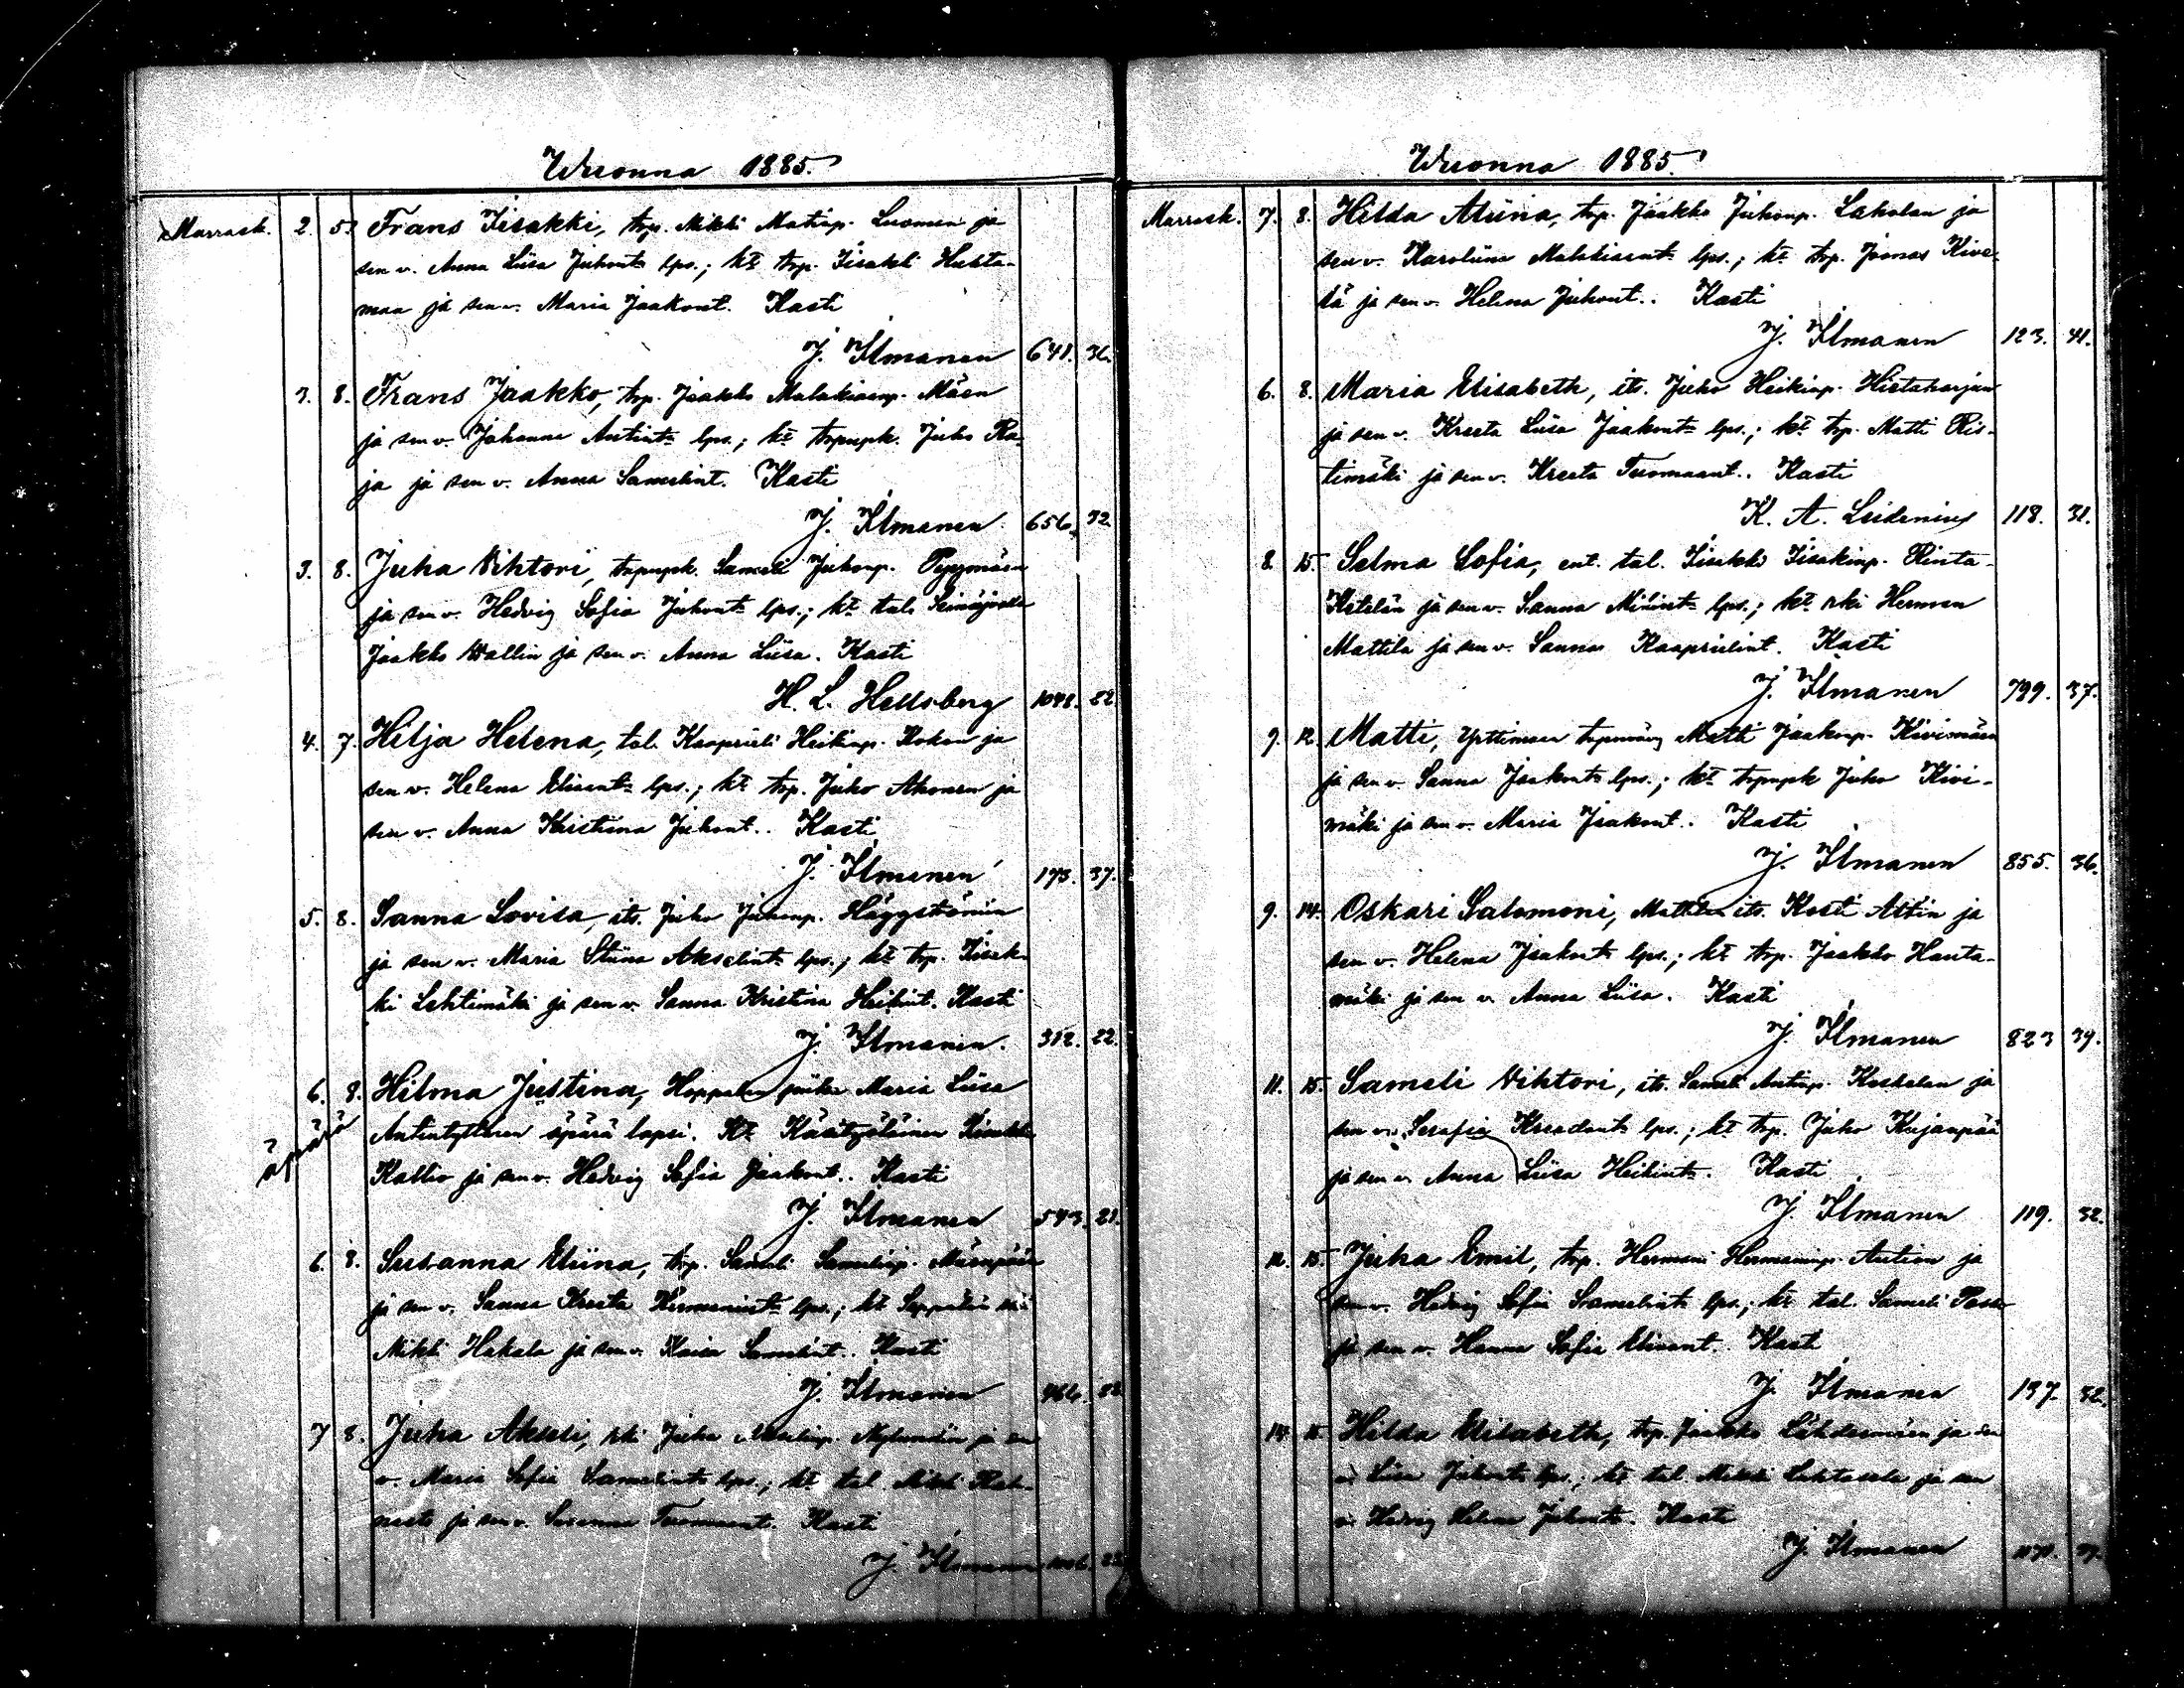 Wuonna 1885.
Marrask. 2. 5. Frans Iisakki, trp. Mikki Matinp. Luoman ja
sen v. Anna Liisa Juhont. lps.; kt. trp. Iisakki Huhta-
maa ja sen v. Maria Jaakont. Kasti
J. Ilmanen 641. 36.
3. 8. Frans Jaakko, trp. Jaakko Malakiaanp. Mäen
ja sen v. Johanna Antint. lps.; kt. trpnpk. Juho Ra-
ja ja sen v. Anna Samelint. Kasti
J. Ilmanen 656. 32.
3. 8. Juha Vihtori, trpnpk. Sameli Juhonp.
ja sen v. Hedvig Sofia Juhont. lps.; kt. tal. Seinäjoelta
Jaakko Wallin ja sen v. Anna Liisa. Kasti
H. L. Hellsberg 1048. 22.
4. 7. Hilja Helena, tal. Kaaprieli Heikinp. Kokon ja
sen v. Helena Eliant. lps.; kt. trp. Juho Ahonen ja
sen v. Anna Kristiina Juhont.. Kasti
J. Ilmanen 173. 37.
5. 8. Sanna Lovisa, its. Juho Juhonp. Häggströmin
ja sen v. Maria Stiina Akselint. lps.; kt. trp. Iisak-
ki Lehtimäki ja sen v. Sanna Kristina Heikint. Kasti
J. Ilmanen. 312. 22.
6. 8. Hilma Justina, piika Maria Liisa
äpärä Antintyttären äpärä lapsi. Kt. Käsityöläinen Iisakki
Kallio ja sen v. Hedvig Sofia Jaakont.. Kasti
J. Ilmanen 543. 21.
6. 8. Susanna Eliina, trp. Sameli Samelinp. Mäenpään
ja sen v. Sanna Kreeta Hermanint. lps.; kt. Seppälän
Mikki Hakala ja sen v. Kaisa Samelint.. Kasti
J. Ilmanen
7 8. Juha Akseli, rki Juha ja sen
v. Maria Sofia Samelint. lps.; kt. tal. Mikki
ja sen v. Susanna Tuomaant. Kasti
J. Ilmanen
Wuonna 1885.
Marrask. 7. 8. Hilda Aliina, trp. Jaakko Juhonp. Laholan ja
sen v. Karoliina Malakiaant. lps.; kt. trp. Joonas Kive-
lä ja sen v. Helena Juhont.. Kasti
J. Ilmanen 123. 41.
6. 8. Maria Elisabeth, its. Juho Heikinp. Hietaharjun
ja sen v. Kreeta Liisa Jaakont. lps.; kt. trp. Matti Ris-
timäki ja sen v. Kreeta Tuomaant.. Kasti
K. A. Leidenius 118. 31.
8. 15. Selma Sofia, ent. tal. Iisakki Iisakinp. Rinta-
Ketelän ja sen v. Sanna Mikint. lps.; kt. rki Herman
Mattila ja sen v. Sanna Kaaprielint. Kasti
J. Ilmanen 799. 37.
9. 12. Matti, Yrttimaa Matti Jaakonp. Kivimäen
ja sen v. Sanna Jaakont. lps.; kt. trpnpk Juho Kivi-
mäki ja sen v. Maria Jaakont.. Kasti
J. Ilmanen 855. 36.
9. 14. Oskari Salomoni, Mattilan its. Kosti Attin ja
sen v. Helena Jaakont. lps.; kt. trp. Jaakko Hauta-
mäki ja sen v. Anna Liisa. Kasti
J. Ilmanen 823 39.
11. 15. Sameli Vihtori, its. Sameli Antinp. Koskelan ja
sen v. Serafia lps.; kt. trp. Juho Kujanpää
ja sen v. Anna Liisa Heikint. Kasti
J. Ilmanen 119. 32.
12. 15. Juha Emil, trp. Hermanni Hermaninp. Aution ja
sen v. Hedvig Sofia Samelint. lps.; kt. tal. Sameli
ja sen v. Hanna Sofia Eliant.. Kasti
J. Ilmanen 137. 32.
14. 15. Hilda Elisabeth, trp. Jaakko Lähdesmäen ja sen
v. Liisa Juhont. lps.; kt. tal. Mikki ja sen
v. Hedvig Helena Juhont. Kasti
J. Ilmanen